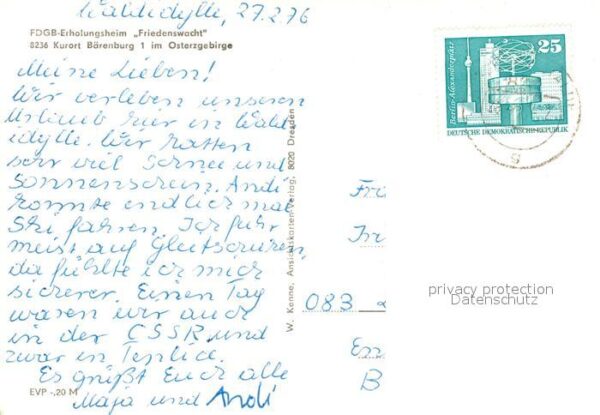 Waldidylle, 27.2.76
FDGB-Erholungsheim „Friedenswacht"
8236 Kurort Bärenburg 1 im Osterzgebirge
Meine Lieben!
Wir verleben unseren
Urlaub hier in Wald
idylle. Wir hatten
sehr viel Schnee und
Sonnenschein. Andi
konnte endlich mal
Ski fahren. Ich fuhr
meist auf Gleitschuhen,
da fühlte ich mich
sicherer. Einen Tag
waren wir auch
in der ČSSR und
zwar in Teplice.
Es grüßt Euch alle
Maja und Andi
EVP -,20 M
W. Kenne, Ansichtskarten-Verlag, 8020 Dresden
Berlin-Alexanderplatz
25
DEUTSCHE DEMOKRATISCHE REPUBLIK
083
B
privacy protection
Datenschutz